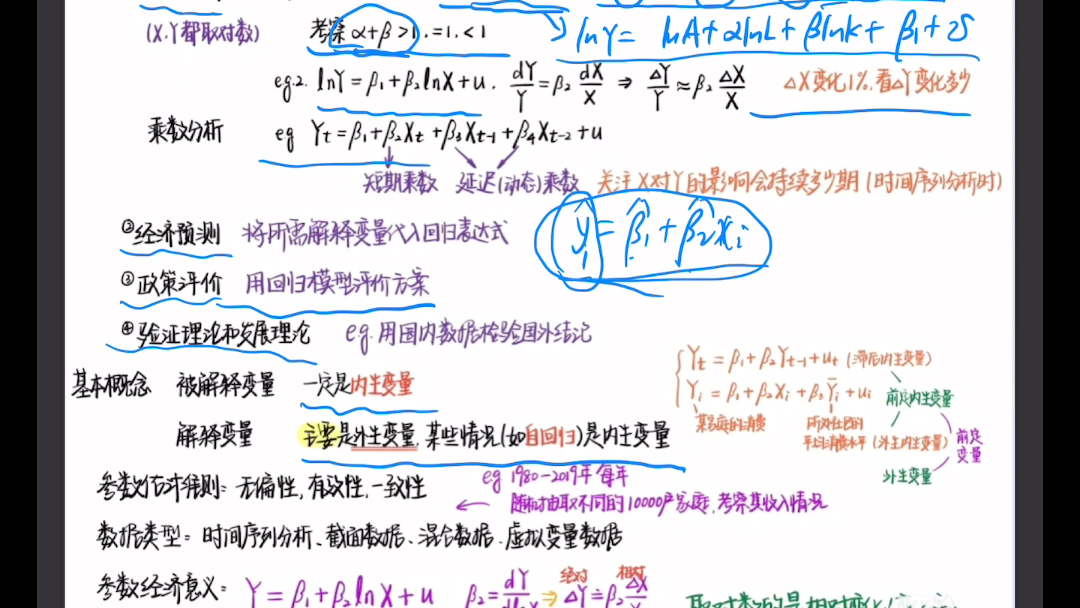 (X.Y都取对数) 考察 α+β>1.=1.<1 lnY= lnA+αlnL+βlnk+ β₁+
eg.2. lnY=β₁+β₂lnX+u. dY/Y=β₂ dX/X ⇒ ΔY/Y≈β₂ ΔX/X ΔX变化1%,看ΔY变化多少
乘数分析 eg Yt=β₁+β₂Xt+β₃Xt-1+β₄Xt-2+u
短期乘数 延迟(动态)乘数 关注X对Y的影响会持续多少期(时间序列分析时)
②经济预测 将所需解释变量代入回归表达式 ŷi=β̂₁+β̂₂xi
③政策评价 用回归模型评价方案
④验证理论和发展理论 eg.用国内数据检验国外结论
Yt=β₁+β₂Yt-1+ut (滞后内生变量)
基本概念 被解释变量 一定是内生变量
Yi=β₁+β₂Xi+β₃Ȳi+ui 前定内生变量
某家庭的消费 所处社区的
平均消费水平(外生内生变量) 前定变量
解释变量 主要是外生变量,某些情况(如自回归)是内生变量
外生变量
参数估计准则:无偏性,有效性,一致性 eg 1980-2019年每年
随机抽取不同的10000户家庭,考察其收入情况
数据类型:时间序列分析、截面数据、混合数据、虚拟变量数据
参数经济意义: Y=β₁+β₂lnX+u β₂=dY/dlnX ⇒ ΔY≐β₂ ΔX/X 绝对 相对